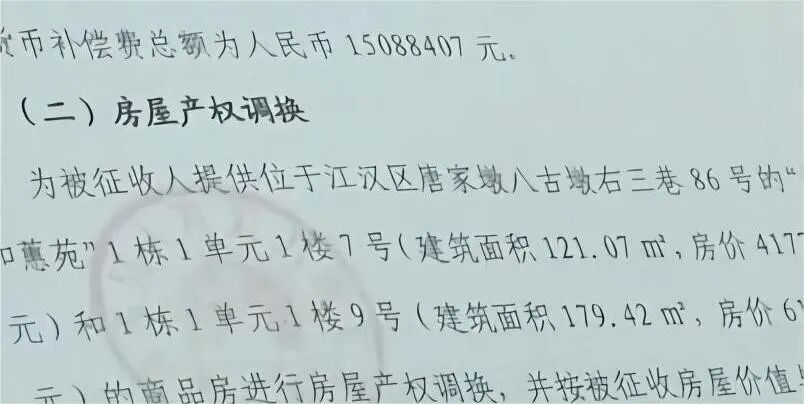 币补偿费总额为人民币 15088407 元。
（二）房屋产权调换
为被征收人提供位于江汉区唐家墩八古墩右三巷 86 号的“
和蕙苑”1 栋 1 单元 1 楼 7 号（建筑面积 121.07 ㎡，房价 417
元）和 1 栋 1 单元 1 楼 9 号（建筑面积 179.42 ㎡，房价 6
元）的商品房进行房屋产权调换，并按被征收房屋价值